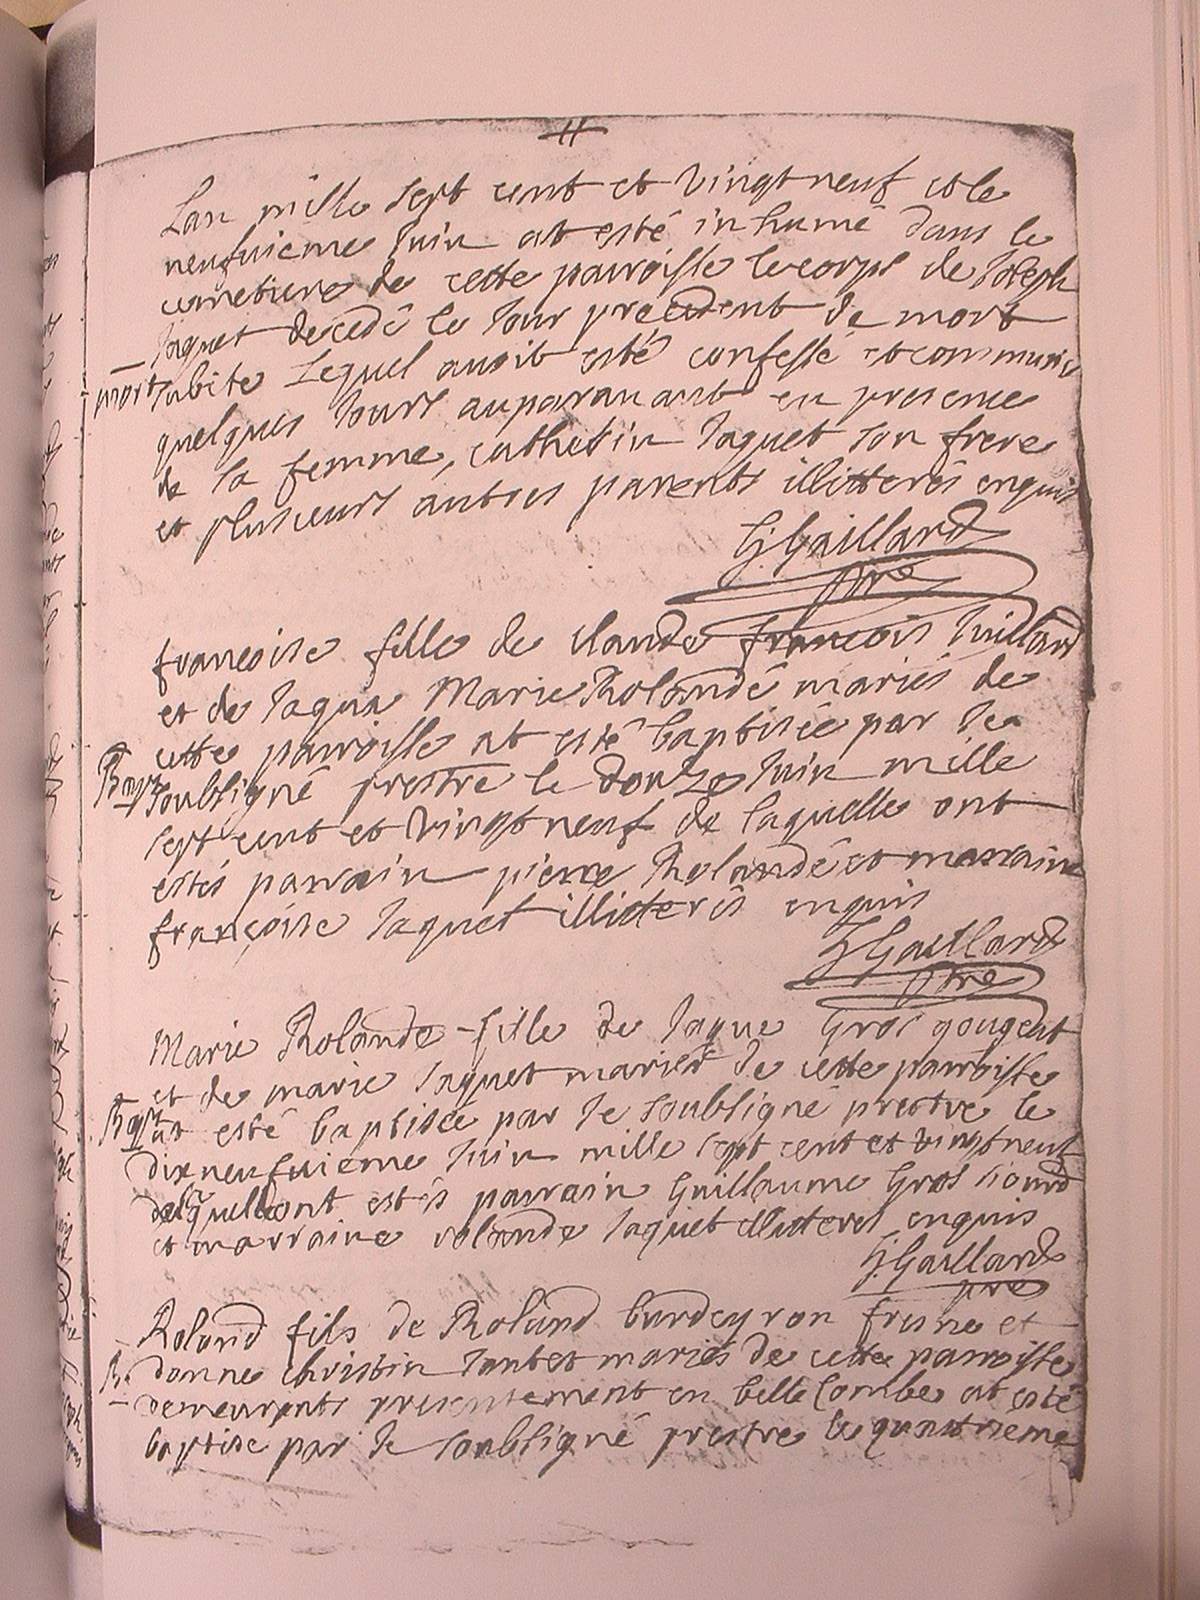 Lan mille sept cent et vingt neuf et le
neufuieme Juin at esté inhumé dans le
cemetiere de cette parroisse le corps de Joseph
Jaquet decedé le Jour precedent de mort
mort subite Lequel auoit esté confessé et communié
quelques Jours auparauant en presence
de sa femme, cathelin Jaquet son frere
et plusieurs autres parents illitterés enquis
G. Gaillard
pre
francoise fille de claude francois Juillard
et de Jaqua Marie Rolande mariés de
cette parroisse at esté baptisée par Je
Bapt soubsigné prestre le douze Juin mille
sept cent et vingt neuf de laquelle ont
estés parrain pierre Rolande et marraine
françoise Jaquet illitterés enquis
G Gaillard
pre
Marie Rolande fille de Jaque Gros gougent
et de marie Jaquet mariés de cette parroisse
Bapt at esté baptisée par Je soubsigné prestre le
dixneufuieme Juin mille sept cent et vingt neuf
de laquelle ont estés parrain Guillaume Gros
et marraine rolande Jaquet illitteres enquis
G. Gaillard
pre
Roland fils de Roland burdeyron fresne et
B. donne christin mariés de cette parroisse
demeurants presentement en belle Combe at esté
baptise par Je soubsigné prestre le quatrieme